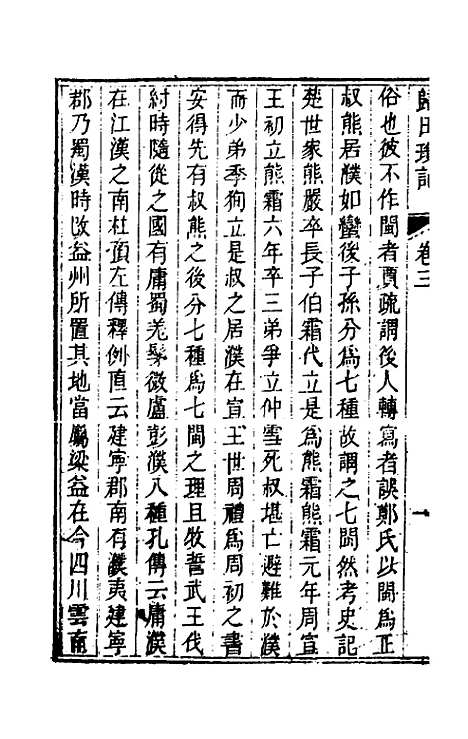 歸田瑣記
卷三
一
俗也彼不作閩者賈疏謂後人轉寫者誤鄭氏以閩爲正
叔熊居濮如蠻後子孫分爲七種故謂之七閩然考史記
楚世家熊嚴卒長子伯霜代立是爲熊霜熊霜元年周宣
王初立熊霜六年卒三弟爭立仲雪死叔堪亡避難於濮
而少弟季狥立是叔之居濮在宣王世周禮爲周初之書
安得先有叔熊之後分七種爲七閩之理且牧誓武王伐
紂時隨從之國有庸蜀羌髳微盧彭濮八種孔傳云庸濮
在江漢之南杜預左傳釋例直云建寧郡南有濮夷建寧
郡乃蜀漢時改益州所置其地當屬梁益在今四川雲南